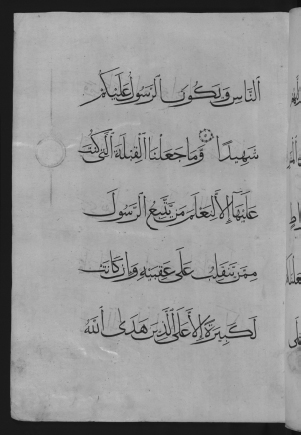 ٱلنَّاسِ وَيَكُونَ ٱلرَّسُولُ عَلَيْكُمْ
شَهِيدًا وَمَا جَعَلْنَا ٱلْقِبْلَةَ ٱلَّتِي كُنْتَ
عَلَيْهَا إِلَّا لِنَعْلَمَ مَنْ يَتَّبِعُ ٱلرَّسُولَ
مِمَّنْ يَنْقَلِبُ عَلَى عَقِبَيْهِ وَإِنْ كَانَتْ
لَكَبِيرَةً إِلَّا عَلَى ٱلَّذِينَ هَدَى ٱللَّهُ